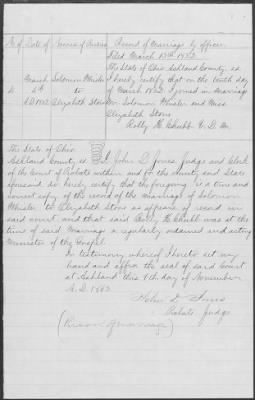 No. of Date of Names of Parties Record of Marriage by officer
Filed March 13th 1832
The State of Ohio Ashland County, ss
March Solomon Whisler I hereby certify that on the tenth day
6th to of March 1832 I joined in Marriage
A.D. 1832 Elizabeth Stone Mr Solomon Whisler and Miss
Elizabeth Stone
Rolly H. Chubb V. D. M.
The State of Ohio
Ashland County, ss I John D Jones Judge and Clerk
of the Court of Probate within and for the County and State
aforesaid do hereby certify that the foregoing is a true and
correct copy of the record of the Marriage of Solomon
Whisler to Elizabeth Stone as appears of record in
said court and that said Rolly H. Chubb was at the
time of said Marriage a regularly ordained and acting
Minister of the Gospel.
In testimony whereof I hereto set my
hand and affix the seal of said Court
at Ashland this 9th day of November
A. D. 1863
John D Jones
Probate Judge